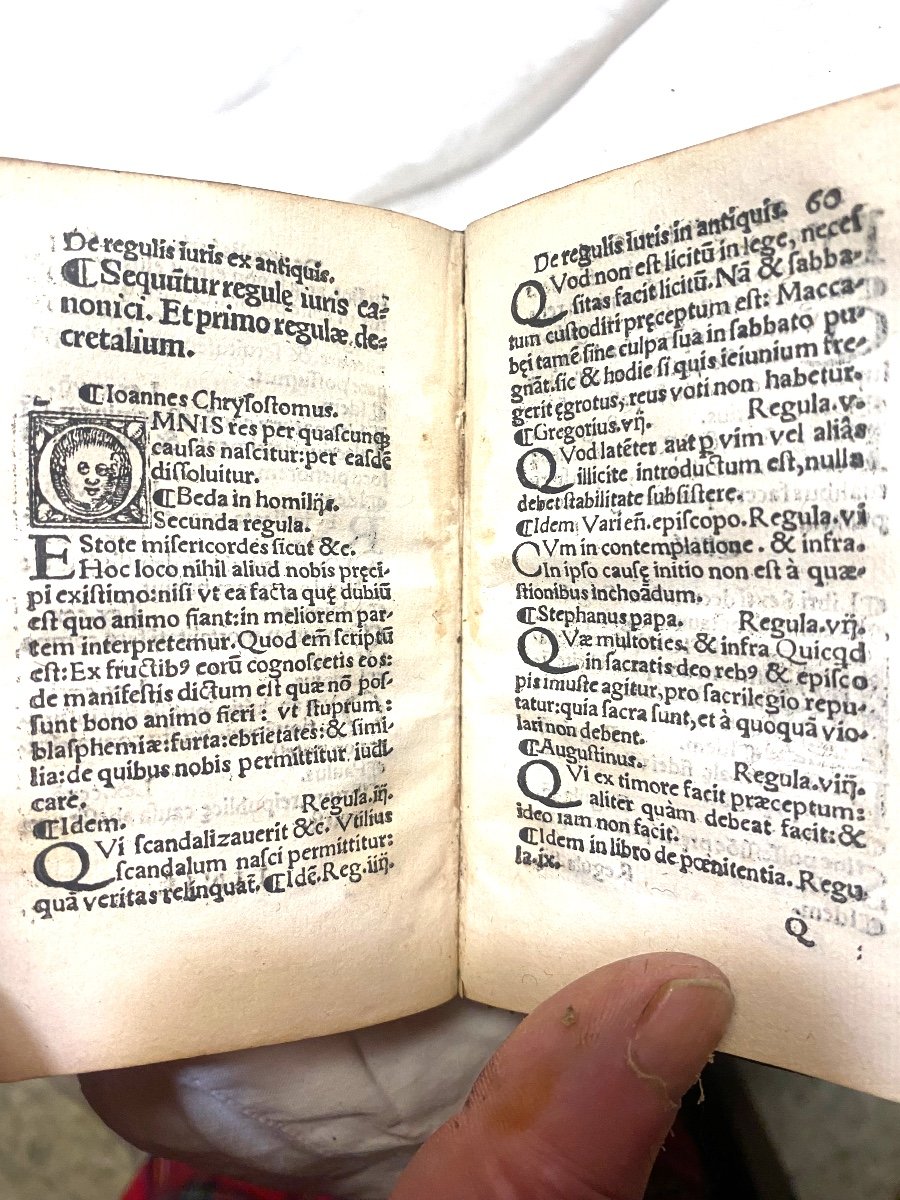 De regulis iuris ex antiquis.
¶Sequūtur regulę iuris ca⸗
nonici. Et primo regulæ de⸗
cretalium.
¶Ioannes Chryſoſtomus.
OMNIS res per quaſcunqꝫ
cauſas naſcitur: per eaſdē
diſſoluitur.
¶Beda in homilijs.
Secunda regula.
EStote miſericordes ſicut &c.
Hoc loco nihil aliud nobis pręci⸗
pi exiſtimo: niſi vt ea facta quę dubiū
eſt quo animo fiant: in meliorem par⸗
tem interpretemur. Quod em̄ ſcriptū
eſt: Ex fructibꝰ eorū cognoſcetis eos:
de manifeſtis dictum eſt quæ nō poſ⸗
ſunt bono animo fieri: vt ſtuprum:
blaſphemiæ: furta: ebrietates: & ſimi⸗
lia: de quibus nobis permittitur iudi⸗
care.
Regula.iij.
¶Idem.
QVi ſcandalizauerit &c. Vtilius
ſcandalum naſci permittitur:
quā veritas relinquat̄. ¶Idē. Reg.iiij.
De regulis iuris in antiquis. 60
QVod non eſt licitū in lege, neceſ
ſitas facit licitū. Nā & ſabba⸗
tum cuſtodiri pręceptum eſt: Macca⸗
bęi tamē ſine culpa ſua in ſabbato pu⸗
gnāt. ſic & hodie ſi quis ieiunium fre⸗
gerit ęgrotus, reus voti non habetur.
¶Gregorius.vij. Regula.v.
QVod latēter aut ꝑ vim vel aliâs
illicite introductum eſt, nulla
debet ſtabilitate ſubſiſtere.
¶Idem Varien̄. epiſcopo. Regula.vi
CVm in contemplatione. & infra.
In ipſo cauſę initio non eſt à quæ⸗
ſtionibus inchoādum.
¶Stephanus papa. Regula.vij.
QVæ multoties, & infra Quicqd
in ſacratis deo rebꝰ & epiſco
pis iniuſte agitur, pro ſacrilegio repu⸗
tatur: quia ſacra ſunt, et à quoquā vio⸗
lari non debent.
¶Auguſtinus. Regula.viij.
QVi ex timore facit præceptum:
aliter quàm debeat facit: &
ideo iam non facit.
¶Idem in libro de pœnitentia. Regu
la.ix.
Q